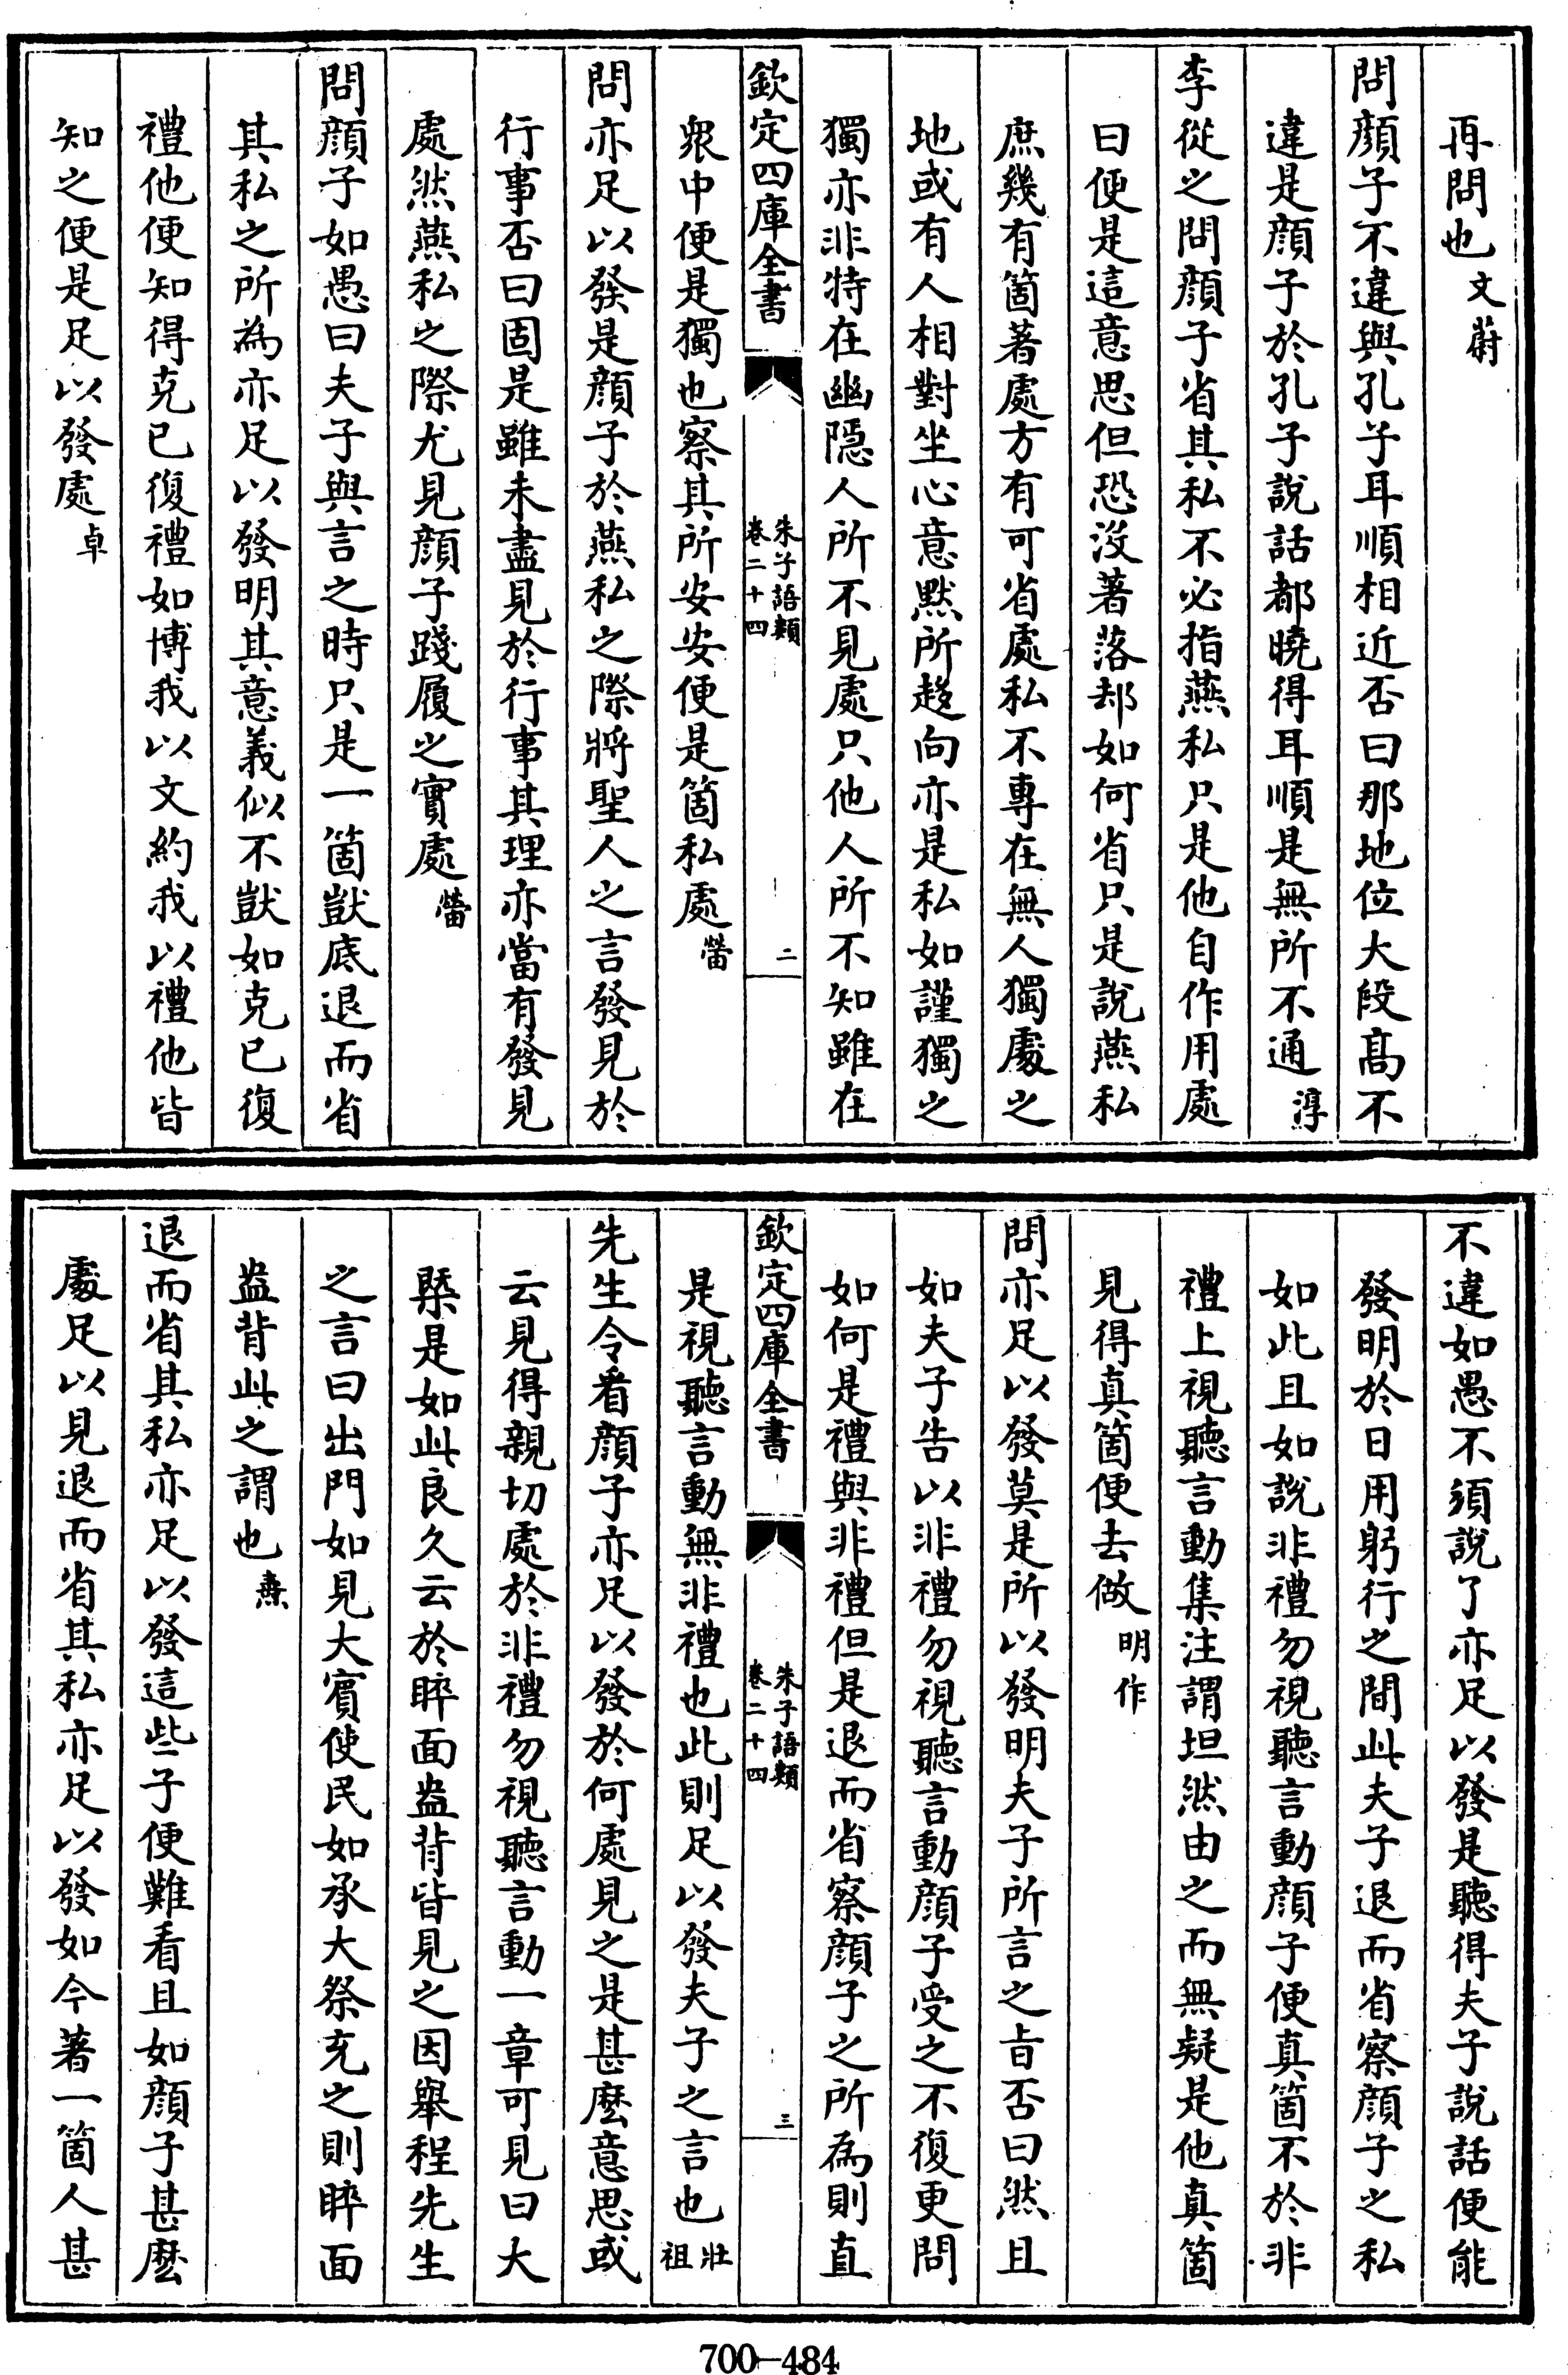 再問也文蔚
問顔子不違與孔子耳順相近否曰那地位大段髙不
違是顔子於孔子說話都曉得耳順是無所不通淳
李從之問顔子省其私不必指燕私只是他自作用處
曰便是這意思但恐沒著落却如何省只是說燕私
庶幾有箇著處方有可省處私不専在無人獨處之
地或有人相對坐心意黙所趍向亦是私如謹獨之
獨亦非特在幽隠人所不見處只他人所不知雖在
欽定四庫全書
朱子語類
卷二十四
二
衆中便是獨也察其所安安便是箇私處㽦
問亦足以發是顔子於燕私之際將聖人之言發見於
行事否曰固是雖未盡見於行事其理亦當有發見
處然燕私之際尤見顔子踐履之實處㽦
問顔子如愚曰夫子與言之時只是一箇獃底退而省
其私之所為亦足以發明其意義似不獃如克已復
禮他便知得克已復禮如博我以文約我以禮他皆
知之便是足以發處卓
不違如愚不須說了亦足以發是聽得夫子說話便能
發明於日用躬行之間此夫子退而省察顔子之私
如此且如說非禮勿視聽言動顔子便真箇不於非
禮上視聽言動集注謂坦然由之而無疑是他真箇
見得真箇便去做明作
問亦足以發莫是所以發明夫子所言之㫖否曰然且
如夫子告以非禮勿視聽言動顔子受之不復更問
如何是禮與非禮但是退而省察顔子之所為則直
欽定四庫全書
朱子語類
卷二十四
三
是視聽言動無非禮也此則足以發夫子之言也壯祖
先生令看顔子亦足以發於何處見之是甚麽意思或
云見得親切處於非禮勿視聽言動一章可見曰大
槩是如此良久云於睟面盎背皆見之因舉程先生
之言曰出門如見大賔使民如承大祭充之則睟面
盎背此之謂也燾
退而省其私亦足以發這些子便難看且如顔子甚麽
處足以見退而省其私亦足以發如今著一箇人甚
700-484